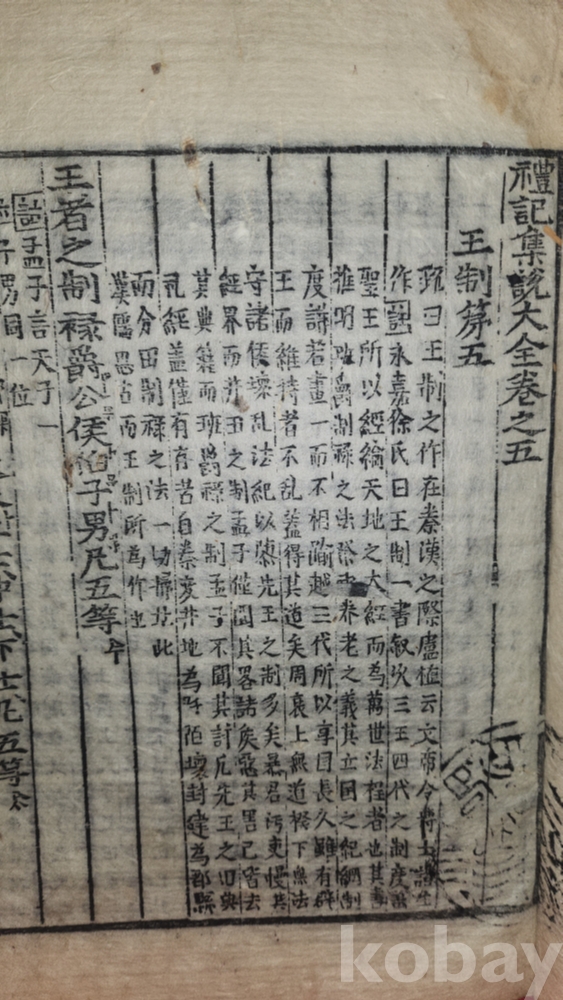 禮記集說大全卷之五
王制第五
疏曰王制之作在秦漢之際盧植云文帝令博士諸生
作 永嘉徐氏曰王制一書叙次三王四代之制度
聖王所以經綸天地之大經而為萬世法程者也其
推明班爵制祿之法祭 養老之義其立国之紀綱制
度講若畫一而不相踰越三代所以享国長久雖有辟
王而維持者不乱蓋得其道矣周衰上無道揆下無法
守諸侯壞乱法紀以 先王之制多矣暴君汚吏慢其
經界而井田之制孟子僅聞其畧諸矦惡其害己皆去
其典籍而班爵祿之制孟子不聞其詳凡先王之旧典
礼經盖僅有存者自秦変井地為阡陌壞封建為郡縣
而分田制祿之法一切掃 此
漢儒 而王制所為作也
王者之制祿爵公侯伯子男凡五等
孟子言天子一
子男同一位 下士凡五等
kobay